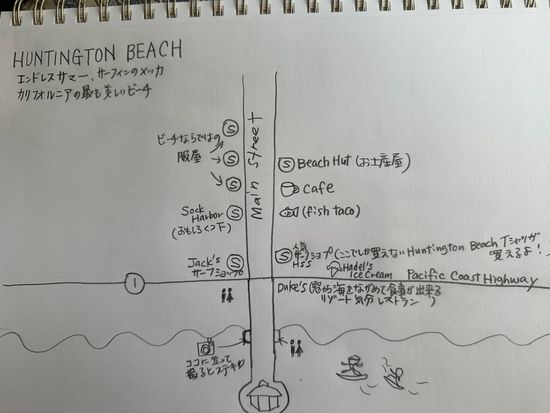 HUNTINGTON BEACH
エンドレスサマー、サーフィンのメッカ
カリフォルニアの最も美しいビーチ
Main Street
ビーチならではの
服屋
S
S
S
Sock
Harbor
(おもしろくつ下)
S
Jack's
サーフショップ
S
S Beach Hut (お土産屋)
cafe
(fish taco)
S 人気
サーフショップ (ここでしか買えない Huntington Beach Tシャツが
HSS
買えるよ!
Hadel's
Ice Cream
Pacific Coast Highway
1
Duke's (窓から海をながめて食事が出来る
リゾート気分レストラン)
ココに立って
撮るとステキ